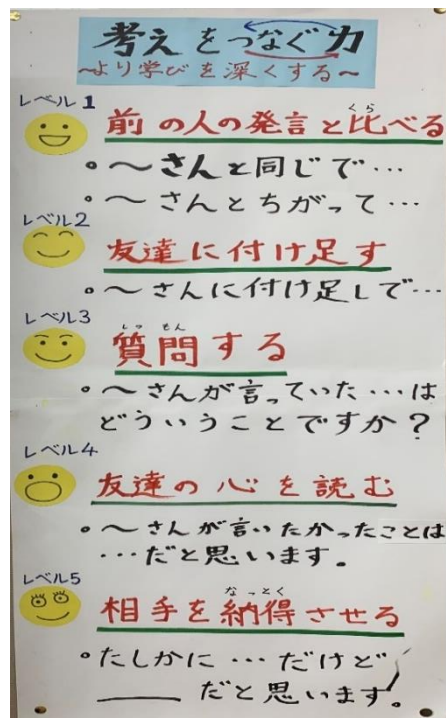 考えをつなぐ力
～より学びを深くする～
レベル1
前の人の発言と比べる
くら
・～さんと同じで…
・～さんとちがって…
レベル2
友達に付け足す
・～さんに付け足しで…
レベル3
しつもん
質問する
・～さんが言っていた…は
どういうことですか？
レベル4
友達の心を読む
・～さんが言いたかったことは
…だと思います。
レベル5
なっとく
相手を納得させる
・たしかに…だけど
＿＿だと思います。